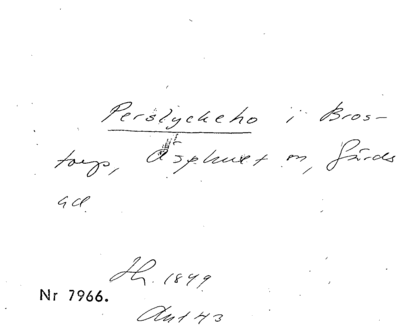 Perslyckeho i Bros-
torp, Åsphult sn, Gärds
hd.
Hr. 1849
Nr 7966.
Ant 43